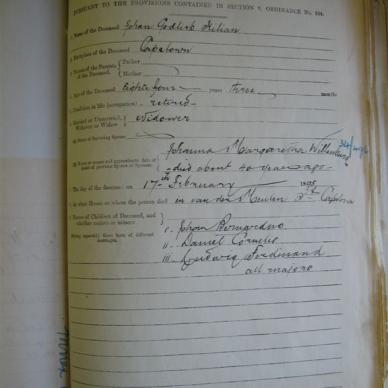 PURSUANT TO THE PROVISIONS CONTAINED IN SECTION 9, ORDINANCE No. 104.
1. Name of the Deceased Johan Godlieb Kilian
2. Birthplace of the Deceased Capetown
3. Names of the Parents of the Deceased { Father
Mother
4. Age of the Deceased Eighty four years three months
5. Condition in life (occupation) retired
6. Married or Unmarried, Widower or Widow { Widower
Name of Surviving Spouse
Johanna Margaretha
(b) Name or names and approximate date of death of previous Spouse or Spouses } died about 40 years ago
7. The day of the decease: on 17th February
8. At what House or where the person died in van der Meulen St Capetown
9. Names of Children of Deceased, and whether majors or minors
i. Johan Bernardus
Stating separately those born of different marriages.
ii. Daniel Cornelis
iii. Ludwig Ferdinand
all majors